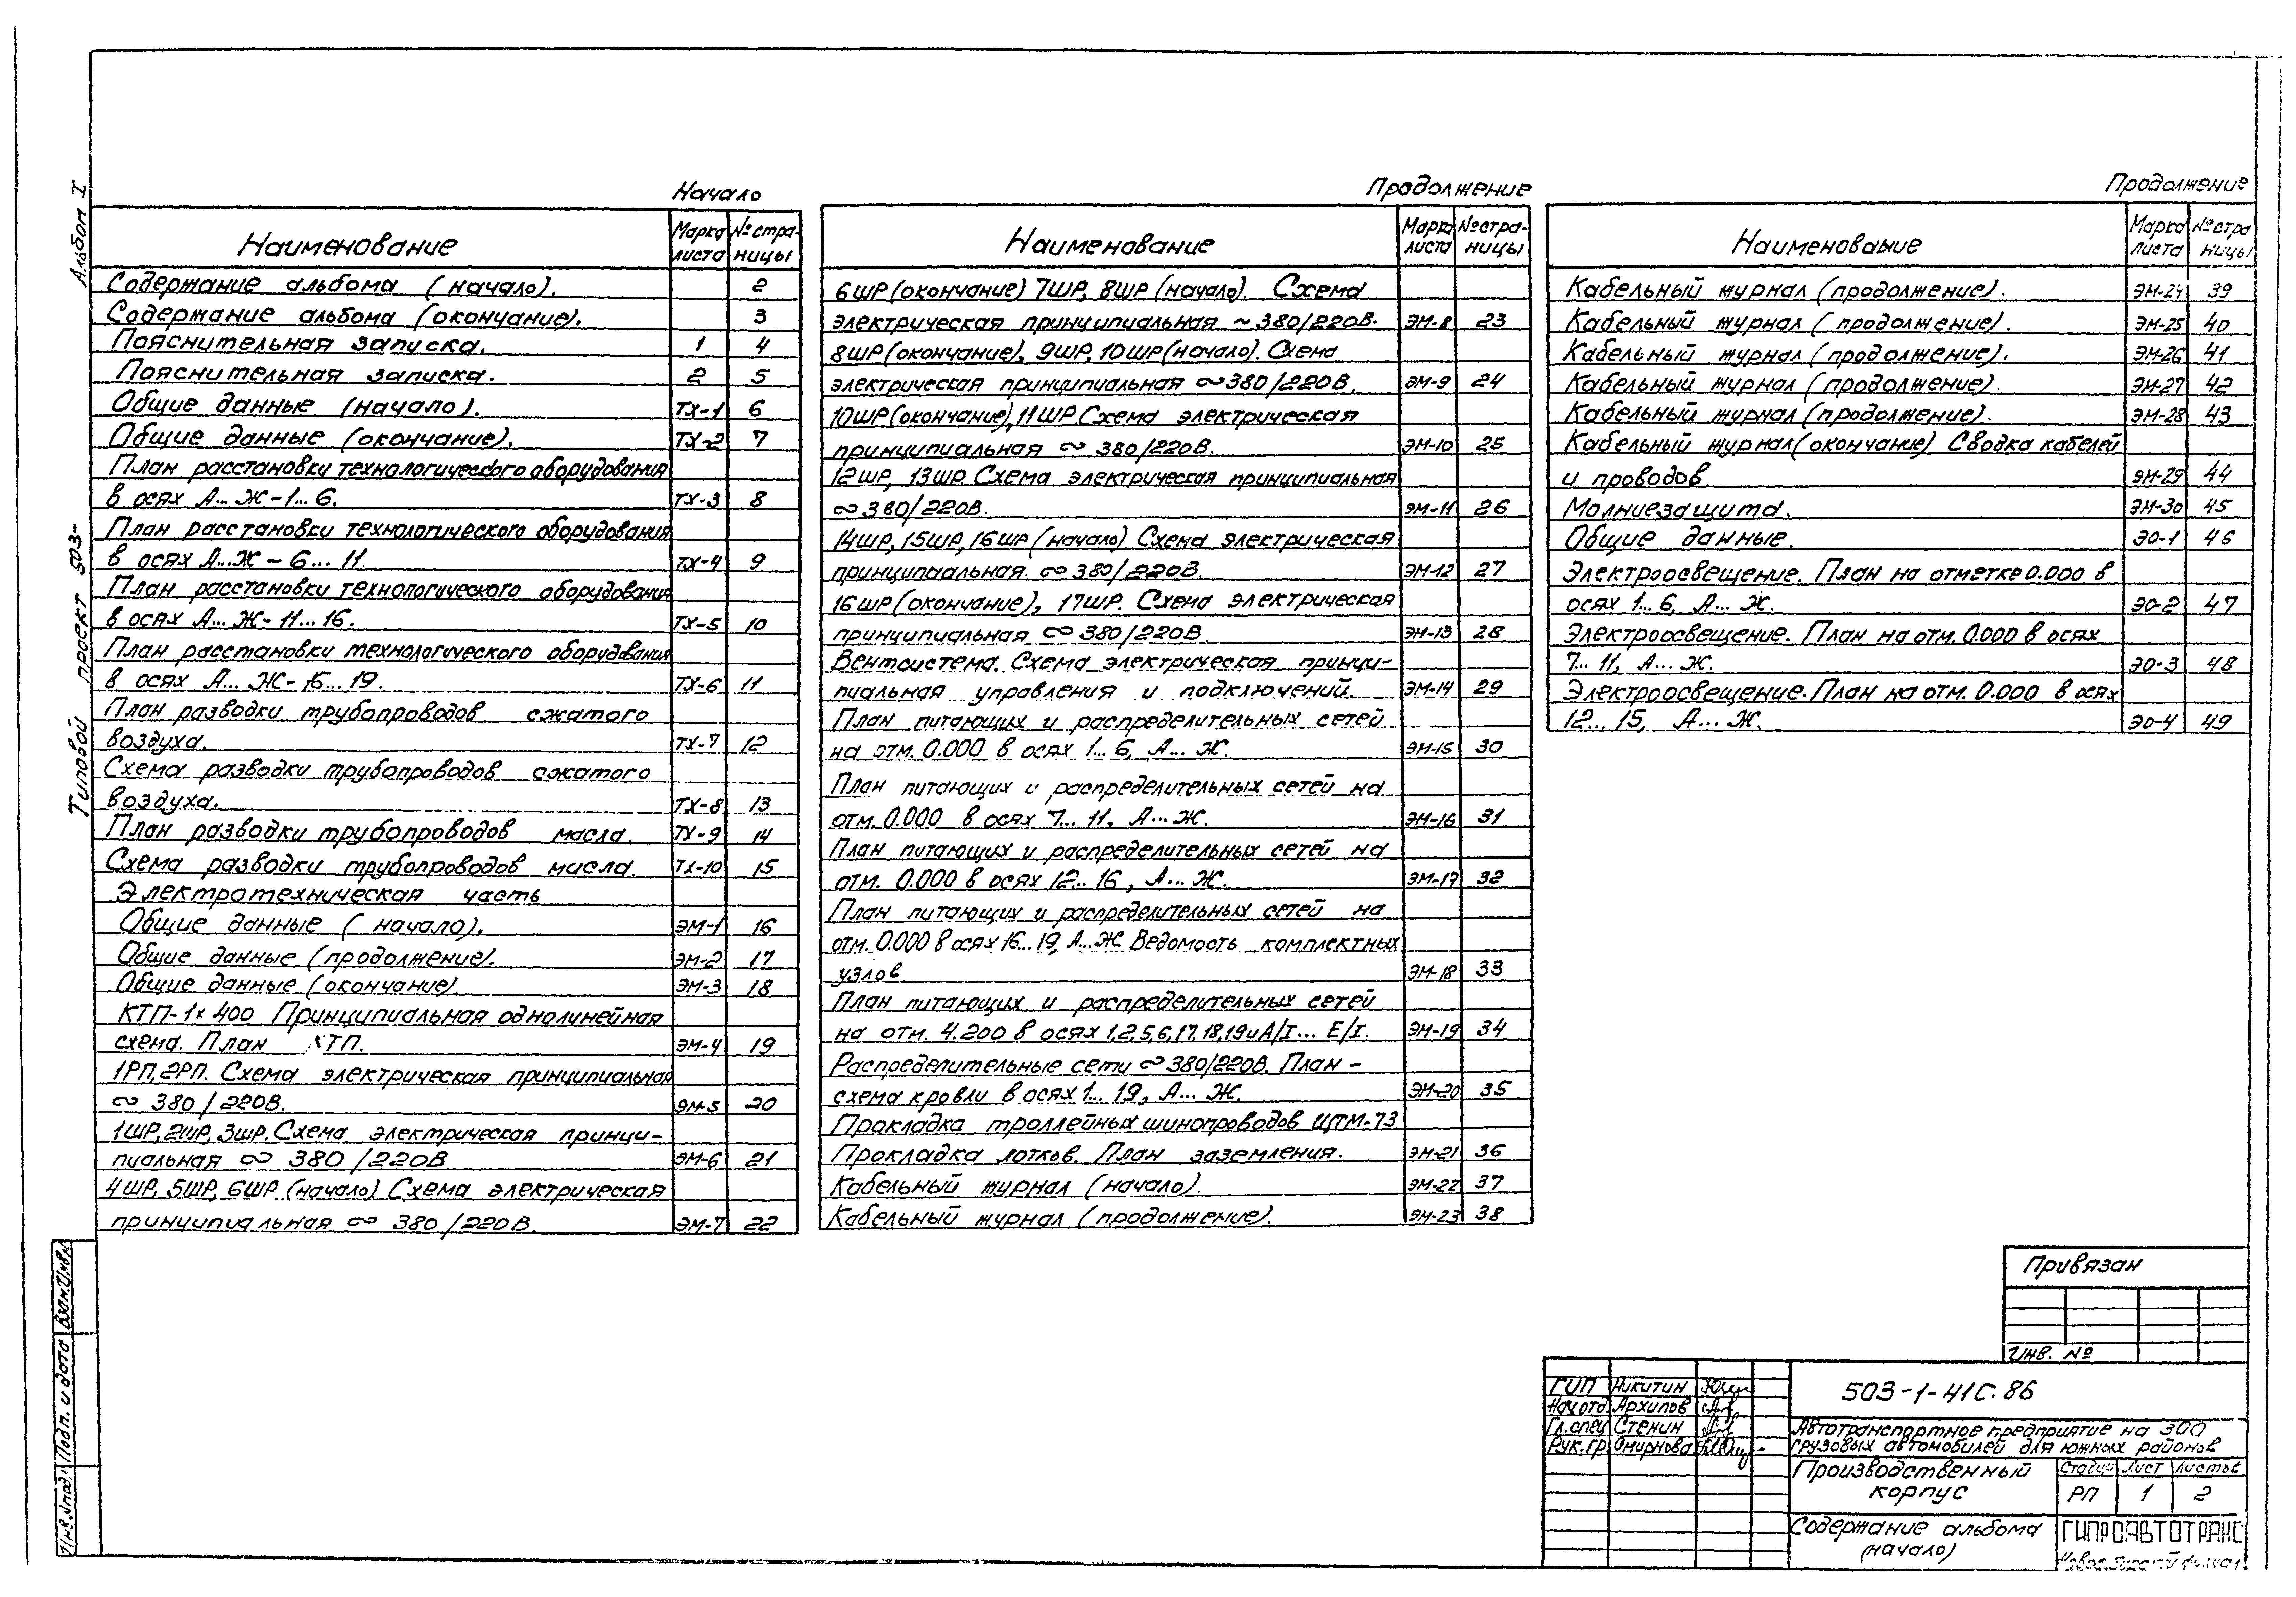 Альбом I
Типовой проект 503-
Начало
Наименование | Марка листа | № страницы
Содержание альбома (начало). 2
Содержание альбома (окончание). 3
Пояснительная записка. 1 4
Пояснительная записка. 2 5
Общие данные (начало). ТХ-1 6
Общие данные (окончание). ТХ-2 7
План расстановки технологического оборудования
в осях А...Ж-1...6. ТХ-3 8
План расстановки технологического оборудования
в осях А...Ж-6...11. ТХ-4 9
План расстановки технологического оборудования
в осях А...Ж-11...16. ТХ-5 10
План расстановки технологического оборудования
в осях А...Ж-15...19. ТХ-6 11
План разводки трубопроводов сжатого
воздуха. ТХ-7 12
Схема разводки трубопроводов сжатого
воздуха. ТХ-8 13
План разводки трубопроводов масла. ТХ-9 14
Схема разводки трубопроводов масла. ТХ-10 15
Электротехническая часть
Общие данные (начало). ЭМ-1 16
Общие данные (продолжение). ЭМ-2 17
Общие данные (окончание) ЭМ-3 18
КТП-1×400 Принципиальная однолинейная
схема. План КТП. ЭМ-4 19
1РП, 2РП. Схема электрическая принципиальная
~ 380/220В. ЭМ-5 20
1ШР, 2ШР, 3ШР. Схема электрическая принци-
пиальная ~ 380/220В ЭМ-6 21
4ШР, 5ШР, 6ШР. (начало) Схема электрическая
принципиальная ~ 380/220В. ЭМ-7 22
Продолжение
Наименование | Марка листа | № страницы
6ШР (окончание) 7ШР, 8ШР (начало). Схема
электрическая принципиальная ~ 380/220В. ЭМ-8 23
8ШР (окончание), 9ШР, 10ШР (начало). Схема
электрическая принципиальная ~ 380/220В. ЭМ-9 24
10ШР (окончание), 11ШР. Схема электрическая
принципиальная ~ 380/220В. ЭМ-10 25
12ШР, 13ШР. Схема электрическая принципиальная
~ 380/220В. ЭМ-11 26
14ШР, 15ШР, 16ШР (начало) Схема электрическая
принципиальная ~ 380/220В. ЭМ-12 27
16ШР (окончание), 17ШР. Схема электрическая
принципиальная ~ 380/220В. ЭМ-13 28
Вентсистема. Схема электрическая принци-
пиальная управления и подключений. ЭМ-14 29
План питающих и распределительных сетей
на отм. 0.000 в осях 1...6, А...Ж. ЭМ-15 30
План питающих и распределительных сетей на
отм. 0.000 в осях 7...11, А...Ж. ЭМ-16 31
План питающих и распределительных сетей на
отм. 0.000 в осях 12..16, А...Ж. ЭМ-17 32
План питающих и распределительных сетей на
отм. 0.000 в осях 16...19, А...Ж Ведомость комплектных
узлов. ЭМ-18 33
План питающих и распределительных сетей
на отм. 4.200 в осях 1,2,5,6,17,18,19 и А/I...Е/I. ЭМ-19 34
Распределительные сети ~ 380/220В. План-
схема кровли в осях 1...19, А...Ж. ЭМ-20 35
Прокладка троллейных шинопроводов ШТМ-73
Прокладка лотков. План заземления. ЭМ-21 36
Кабельный журнал (начало). ЭМ-22 37
Кабельный журнал (продолжение). ЭМ-23 38
Продолжение
Наименование | Марка листа | № страницы
Кабельный журнал (продолжение). ЭМ-24 39
Кабельный журнал (продолжение). ЭМ-25 40
Кабельный журнал (продолжение). ЭМ-26 41
Кабельный журнал (продолжение). ЭМ-27 42
Кабельный журнал (продолжение). ЭМ-28 43
Кабельный журнал (окончание) Сводка кабелей
и проводов. ЭМ-29 44
Молниезащита. ЭМ-30 45
Общие данные. ЭО-1 46
Электроосвещение. План на отметке 0.000 в
осях 1...6, А...Ж. ЭО-2 47
Электроосвещение. План на отм. 0.000 в осях
7...11, А...Ж. ЭО-3 48
Электроосвещение. План на отм. 0.000 в осях
12...15, А...Ж. ЭО-4 49
Привязан
Инв. №
ГИП Никитин
Нач.отд Архипов
Гл.спец Стенин
Рук.гр. Смирнова
503-1-41С.86
Автотранспортное предприятие на 300
грузовых автомобилей для южных районов
Производственный
корпус
Стадия Лист Листов
РП 1 2
Содержание альбома
(начало)
ГИПРОАВТОТРАНС
Новосибирский филиал
Взам.инв.№
Подп. и дата
Инв.№ подл.